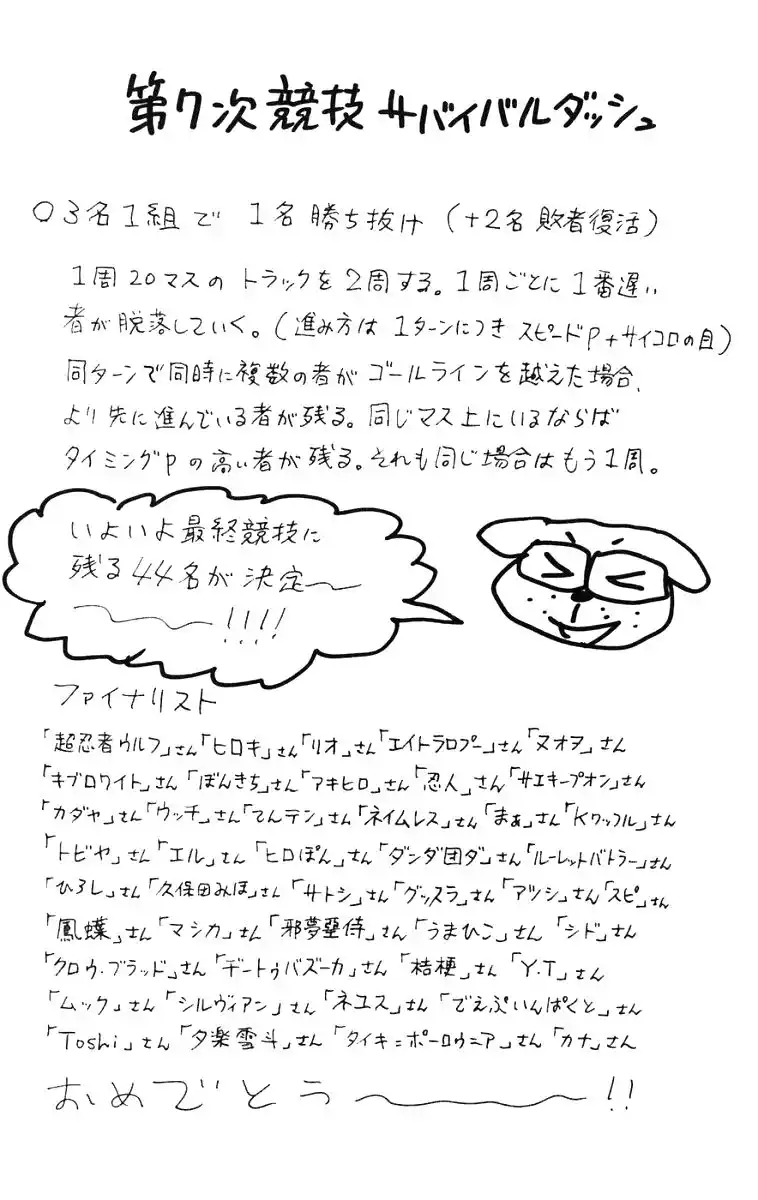 第7次競技 サバイバルダッシュ
○3名1組で 1名勝ち抜け (+2名 敗者復活)
1周20マスの トラックを2周する。1周ごとに1番遅い
者が脱落していく。(進み方は 1ターンにつき スピードP+サイコロの目)
同ターンで同時に複数の者が ゴールラインを越えた場合、
より先に進んでいる者が残る。同じマス上にいるならば
タイミングPの高い者が残る。それも同じ場合はもう1周。
いよいよ最終競技に
残る44名が決定〜
〜!!!!
ファイナリスト
「超忍者ウルフ」さん「ヒロキ」さん「リオ」さん「エイトラロプー」さん「ヌオヲ」さん
「キブロワイト」さん「ぼんきち」さん「アキヒロ」さん「忍人」さん「サエキープオン」さん
「カダヤ」さん「ウッチ」さん「てんテン」さん「ネイムレス」さん「まぁ」さん「Kワッフル」さん
「トビヤ」さん「エル」さん「ヒロぽん」さん「ダンダ団ダ」さん「ルーレットバトラー」さん
「ひろし」さん「久保田みほ」さん「サトシ」さん「グッスラ」さん「アツシ」さん「スピ」さん
「鳳蝶」さん「マシカ」さん「邪夢壘侍」さん「うまひこ」さん「シド」さん
「クロウ・ブラッド」さん「デートゥバズーカ」さん「桔梗」さん「Y.T」さん
「ムック」さん「シルヴィアン」さん「ネユス」さん「でえぷいんぱくと」さん
「Toshi」さん「夕楽雲斗」さん「タイキ=ポーロウニア」さん「カナ」さん
おめでとう〜!!